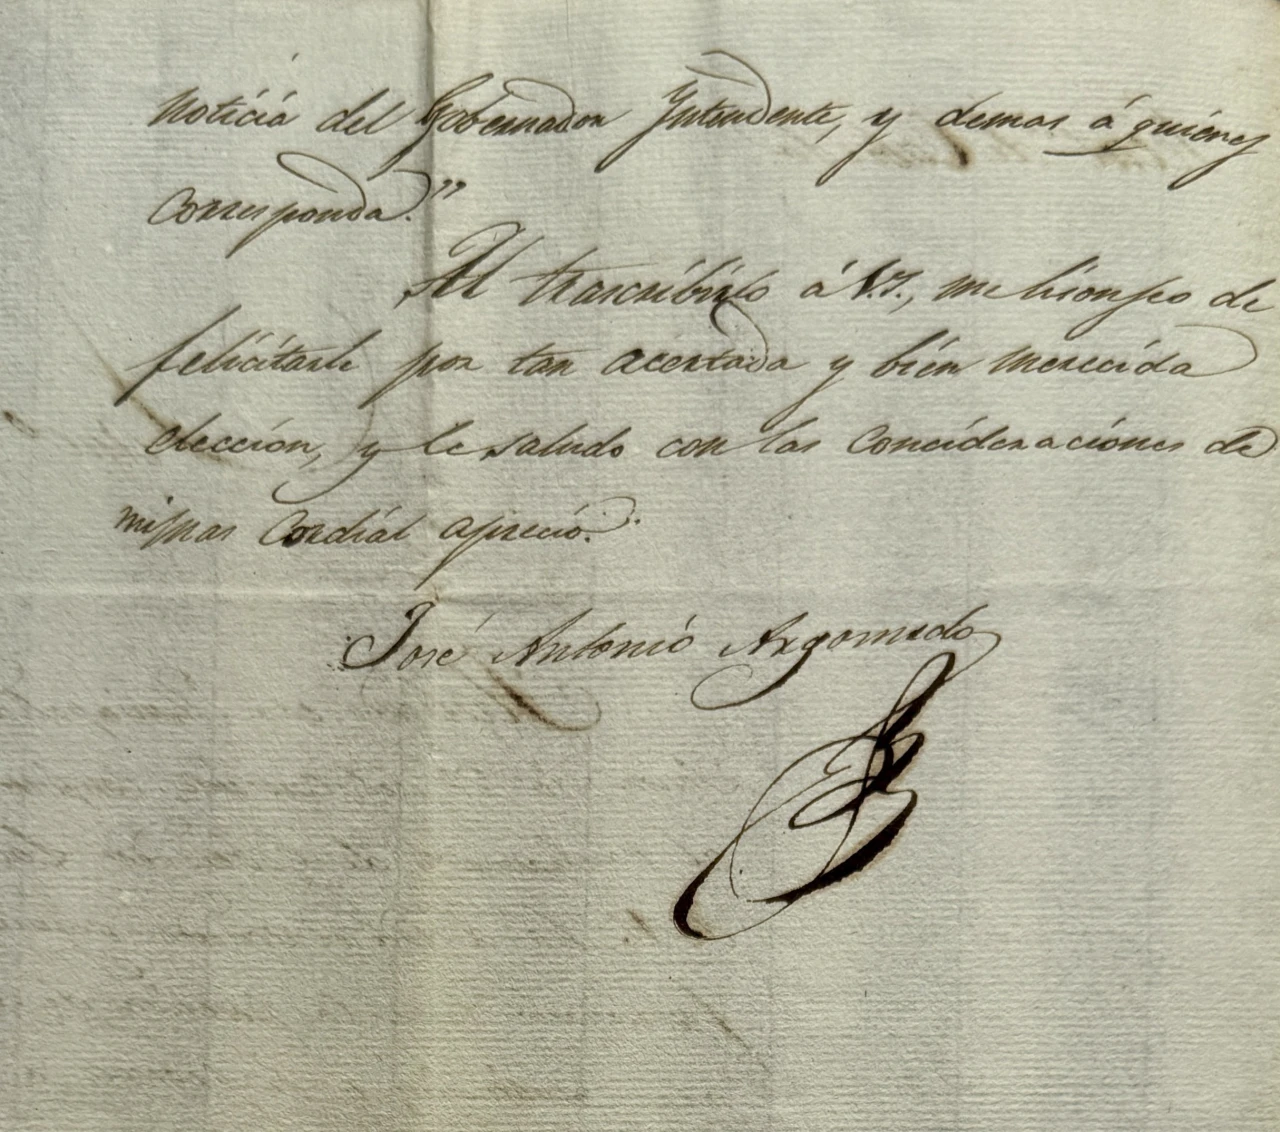 noticia del Gobernador Yntendente, y demas á quienes
corresponda."
Al trascribirlo á V.S., me lisonjeo de
felicitarle por tan acertada y bien merecida
eleccion, y le saludo con las concideraciones de
mi mas cordial aprecio.
José Antonio Argomedo